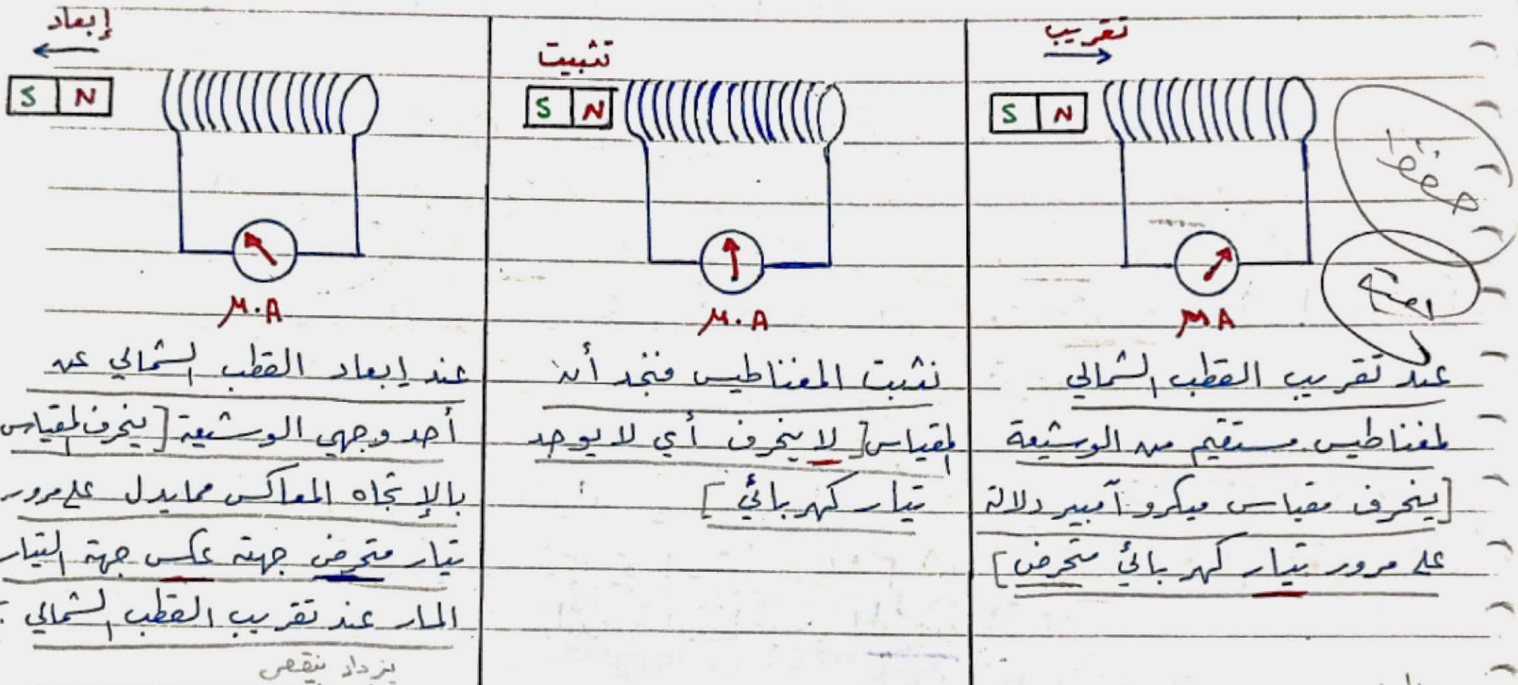 تقريب
S N
حفظ
MA
عند تقريب القطب الشمالي
لمغناطيس مستقيم من الوشيعة
[ينحرف مقياس ميكرو آمبير دلالة
على مرور تيار كهربائي متحرض]
تثبيت
S N
M.A
نثبت المغناطيس فنجد أن
المقياس [لا ينحرف أي لا يوجد
تيار كهربائي]
إبعاد
S N
M.A
عند إبعاد القطب الشمالي عن
أحد وجهي الوشيعة [ينحرف المقياس
بالإتجاه المعاكس مما يدل على مرور
تيار متحرض جهته عكس جهة التيار
المار عند تقريب القطب الشمالي
يزداد ينقص